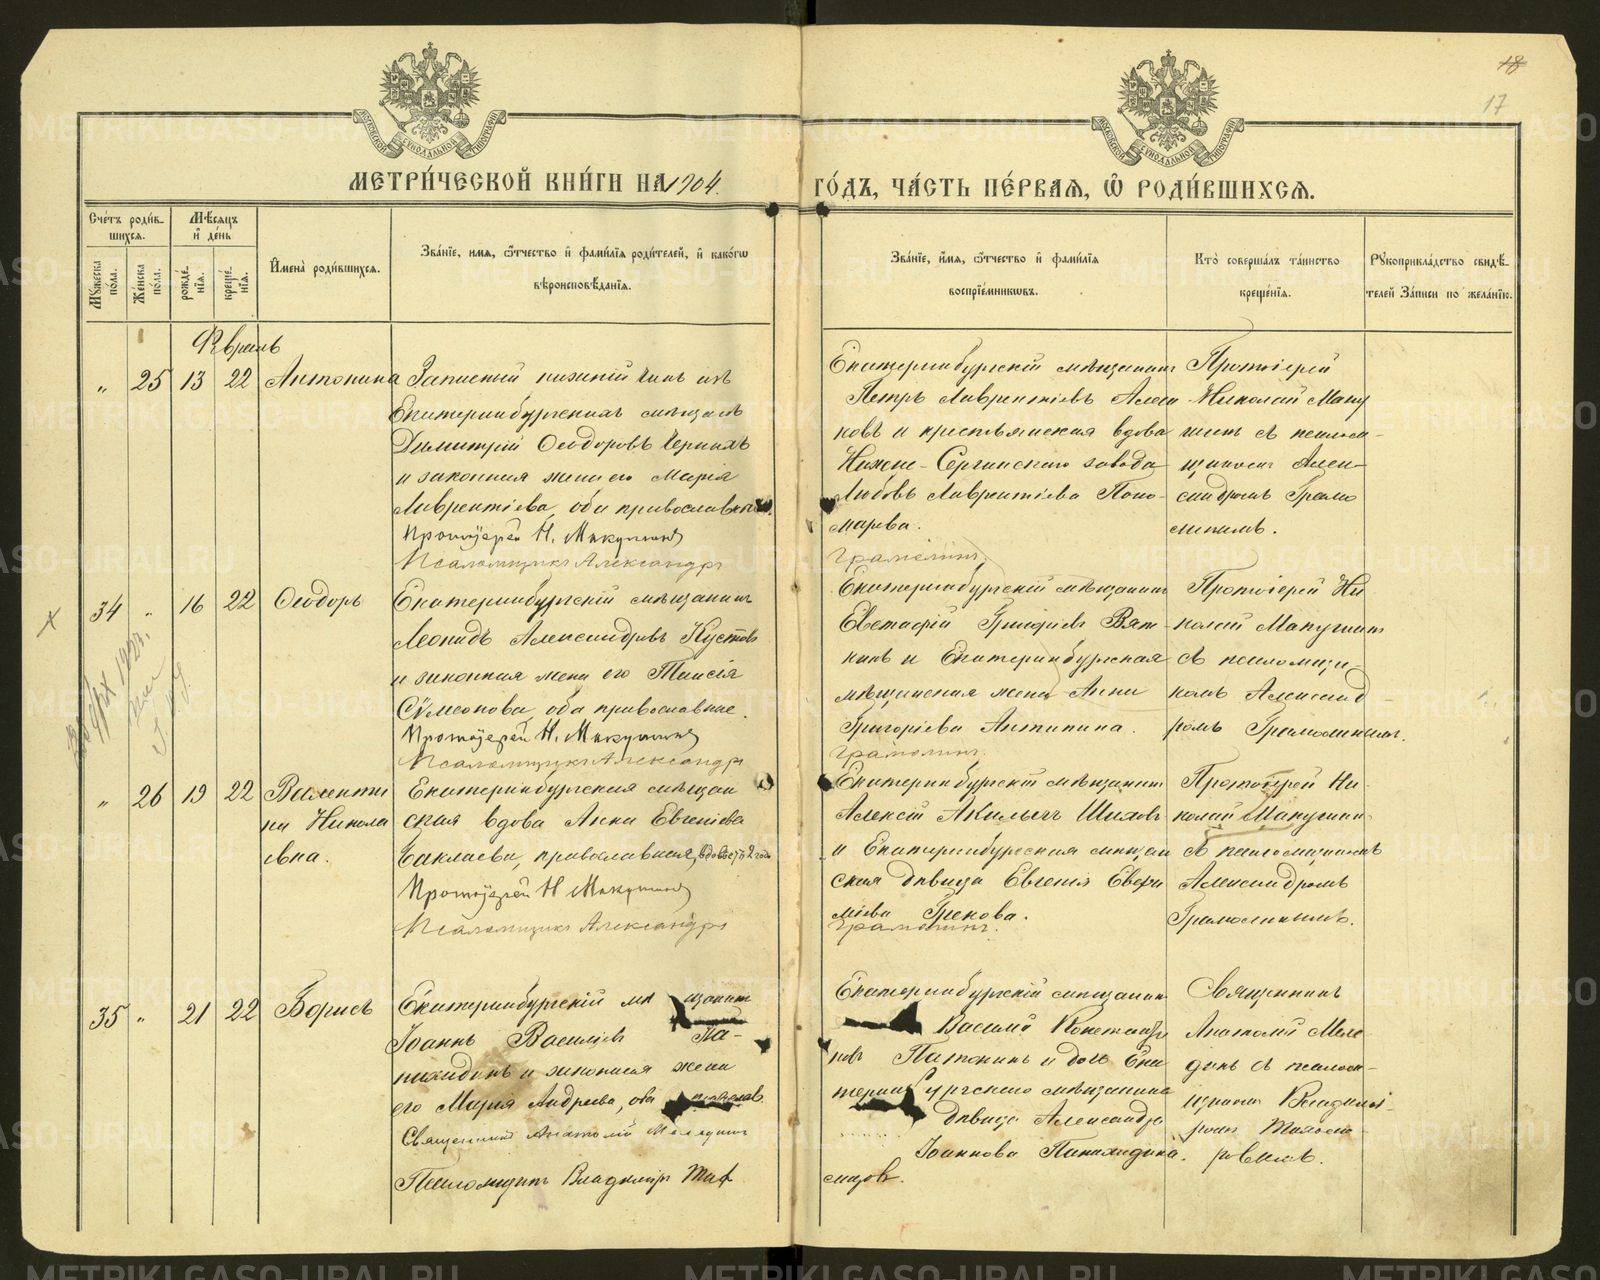 18
17
МОСКОВСКОЙ СѴНОДАЛЬНОЙ ТИПОГРАФІИ
МОСКОВСКОЙ СѴНОДАЛЬНОЙ ТИПОГРАФІИ
МЕТРИ́ЧЕСКОЙ КНИ́ГИ НА 1904. ГО́ДЪ, ЧА́СТЬ ПЕ́РВАѦ, Ѡ҆ РОДИ́ВШИХСѦ.
Сче́тъ роди́в-
шихсѧ.
Мꙋ́жеска по́ла.
Же́нска по́ла.
Мѣ́сѧцъ и҆ де́нь
рожде́нїѧ.
креще́нїѧ.
И҆мена̀ роди́вшихсѧ.
Зва́нїе, и҆мѧ, ѻ҆́тчество и҆ фами́лїѧ роди́телей, и҆ како́гѡ
вѣроисповѣ́данїѧ.
Зва́нїе, и҆́мѧ, ѻ҆́тчество и҆ фами́лїѧ
воспрїе́мникѡвъ.
Кто̀ соверша́лъ та́инство
креще́нїѧ.
Рꙋкоприкла́дство свидѣ́-
телей за́писи по жела́нїю.
Февраль
„ 25 13 22 Антонина
Запасный нижній чинъ изъ
Екатеринбургскихъ мѣщанъ
Димитрій Ѳеодоровъ Черныхъ
и законная жена его Марія
Лаврентіева, оба православные.
Протоіерей Н. Макушинъ
Псаломщикъ Александръ
Екатеринбургскій мѣщанинъ
Петръ Лаврентіевъ
ковъ и крестьянская вдова
Нижне-Сергинскаго завода
Любовь Лаврентіева Поно-
марева.
Грамолинъ.
Протоіерей
Николай Маку
шинъ съ псалом-
щикомъ Алек-
сандромъ Грамо
линымъ.
34 „ 16 22 Ѳеодоръ
Екатеринбургскій мѣщанинъ
Леонидъ Александровъ Кустовъ
и законная жена его Таисія
Сѵмеонова, оба православные.
Протоіерей Н. Макушинъ
Псаломщикъ Александръ
Екатеринбургскій мѣщанинъ
Евстафій Григоріевъ Вят-
кинъ и Екатеринбургская
мѣщанская жена Анна
Григоріева Антипина.
Грамолинъ.
Протоіерей Ни
колай Макушинъ
съ псаломщи-
комъ Александ-
ромъ Грамолинымъ.
„ 26 19 22 Валенти
на Никола
евна.
Екатеринбургская мѣщан
ская вдова Анна Евгеніева
Баклаева, православная, вдовѣетъ 2 года
Протоіерей Н Макушинъ
Псаломщикъ Александръ
Екатеринбургскій мѣщанинъ
Алексій Акилычъ Шиховъ
и Екатеринбургская мѣщан
ская дѣвица Евгенія
Грекова.
Грамолинъ.
Протоіерей Ни-
колай Макушинъ
съ псаломщикомъ
Александромъ
Грамолинымъ.
35 „ 21 22 Борисъ
Екатеринбургскій мѣщанинъ
Іоаннъ Василіевъ Па-
нихидинъ и законная жена
его Марія Андреева, оба православ.
Священникъ Анатолій Мелединъ
Псаломщикъ Владиміръ Тих
Екатеринбургскій мѣщанинъ
Василій Константи
новъ Патокинъ и дочь Ека
теринбургскаго мѣщанина
дѣвица Александра
Іоаннова Панихидина.
Священникъ
Анатолій Меле
динъ съ псалом-
щикомъ Владимі-
ромъ
METRIKI.GASO-URAL.RU